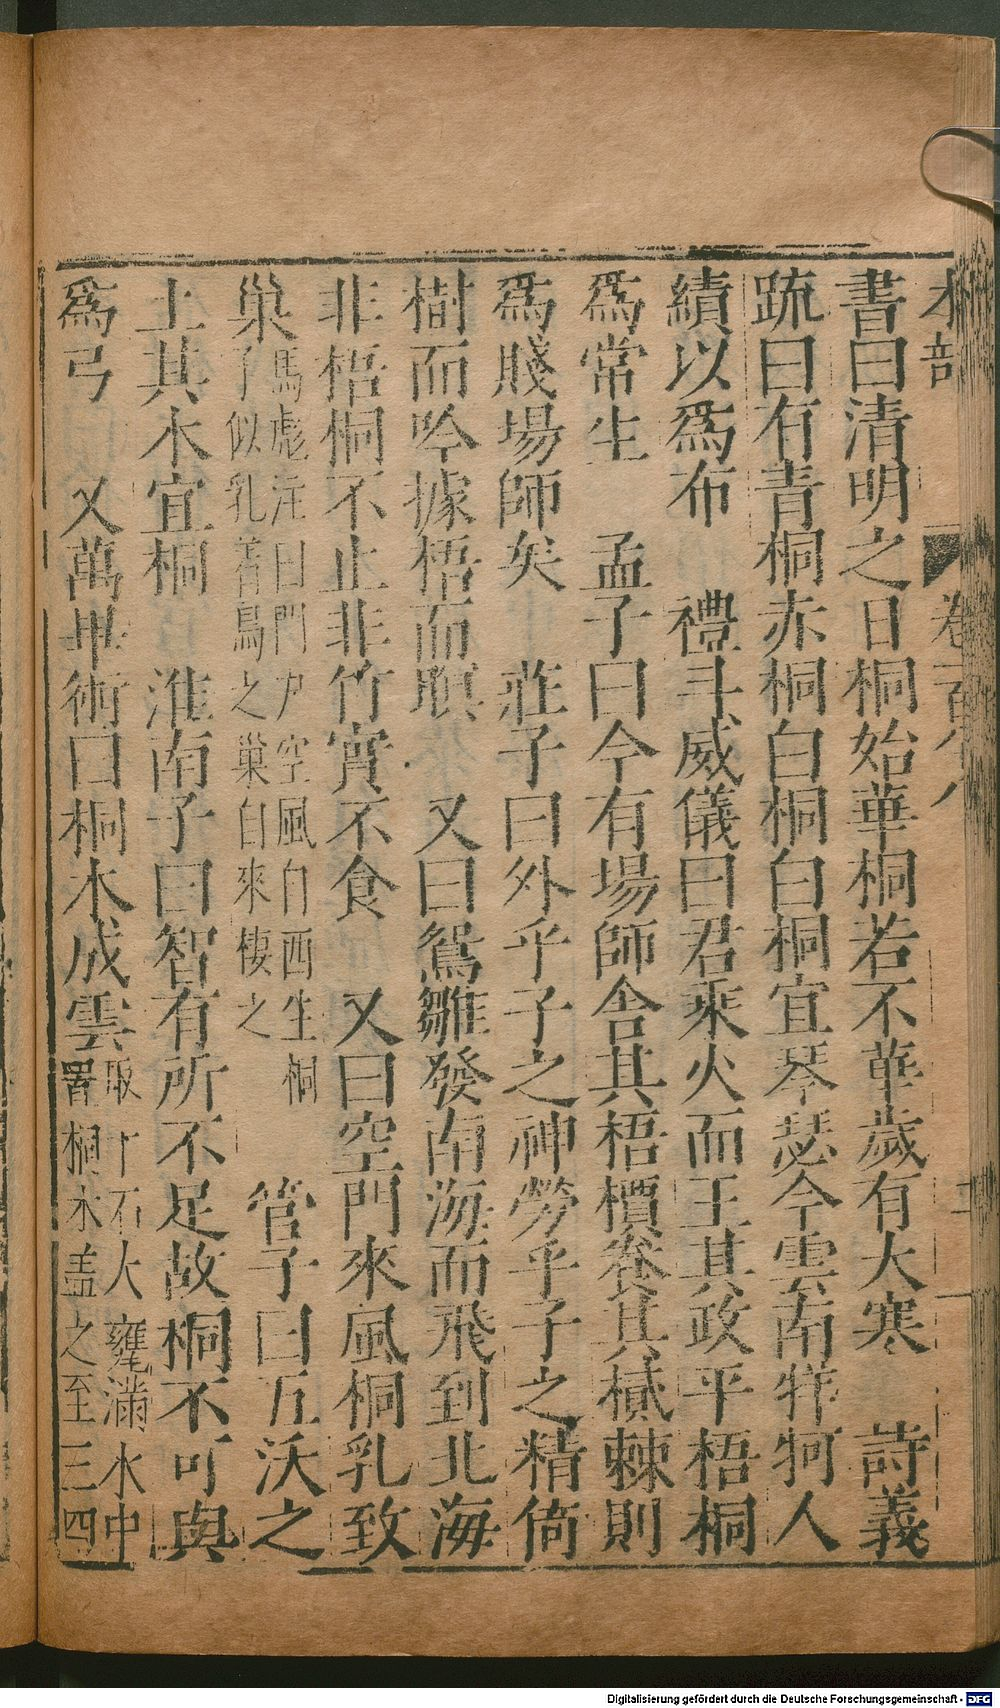 木部
卷一百八
書曰清明之日桐始華桐若不華歲有大寒 詩義
疏曰有青桐赤桐白桐白桐宜琴瑟今雲南牂牁人
績以爲布 禮斗威儀曰君乘火而王其政平梧桐
爲常生 孟子曰今有場師舍其梧檟養其樲棘則
爲賤場師矣 莊子曰外乎子之神勞乎子之精倚
樹而吟據梧而瞑 又曰鴛雛發南海而飛到北海
非梧桐不止非竹實不食 又曰空門來風桐乳致
巢
馬彪注曰門戸空風自西生桐
子似乳着鳥之巢自來棲之
管子曰五沃之
土其木宜桐 淮南子曰智有所不足故桐不可與
爲弓 又萬畢術曰桐木成雲
取十石大甕滿水中
置桐木盖之至三四
Digitalisierung gefördert durch die Deutsche Forschungsgemeinschaft - DFG